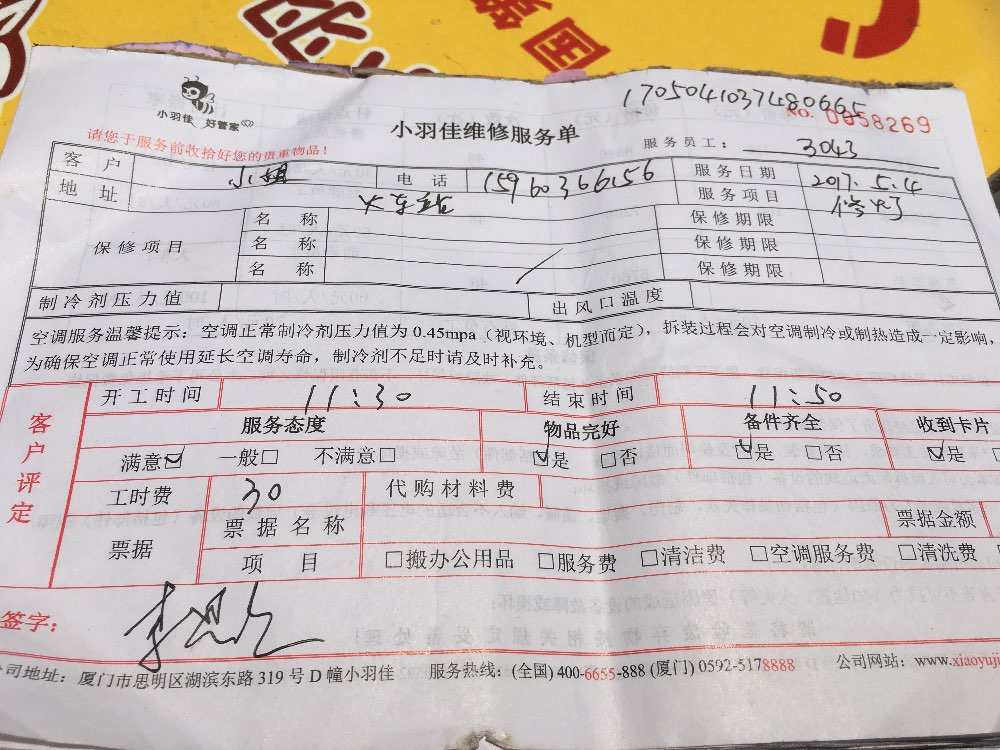 1705041037480665
小羽佳 好管家
小羽佳维修服务单
NO. 0058269
请您于服务前收拾好您的贵重物品！
服务员工： 3043
客户 小姐 电话 15960366156 服务日期 2017.5.4
地址 火车站 服务项目 修灯
保修项目 名称 保修期限
名称 保修期限
名称 保修期限
制冷剂压力值 出风口温度
空调服务温馨提示：空调正常制冷剂压力值为0.45mpa（视环境、机型而定），拆装过程会对空调制冷或制热造成一定影响，
为确保空调正常使用延长空调寿命，制冷剂不足时请及时补充。
客户评定
开工时间 11:30 结束时间 11:50
服务态度 物品完好 备件齐全 收到卡片
满意☑ 一般□ 不满意□ ☑是 □否 ☑是 □否 ☑是
工时费 30 代购材料费
票据 票据名称 票据金额
项目 □搬办公用品 □服务费 □清洁费 □空调服务费 □清洗费
签字：
公司地址：厦门市思明区湖滨东路319号D幢小羽佳 服务热线：(全国) 400-6655-888 (厦门) 0592-5178888 公司网站：www.xiaoyuji